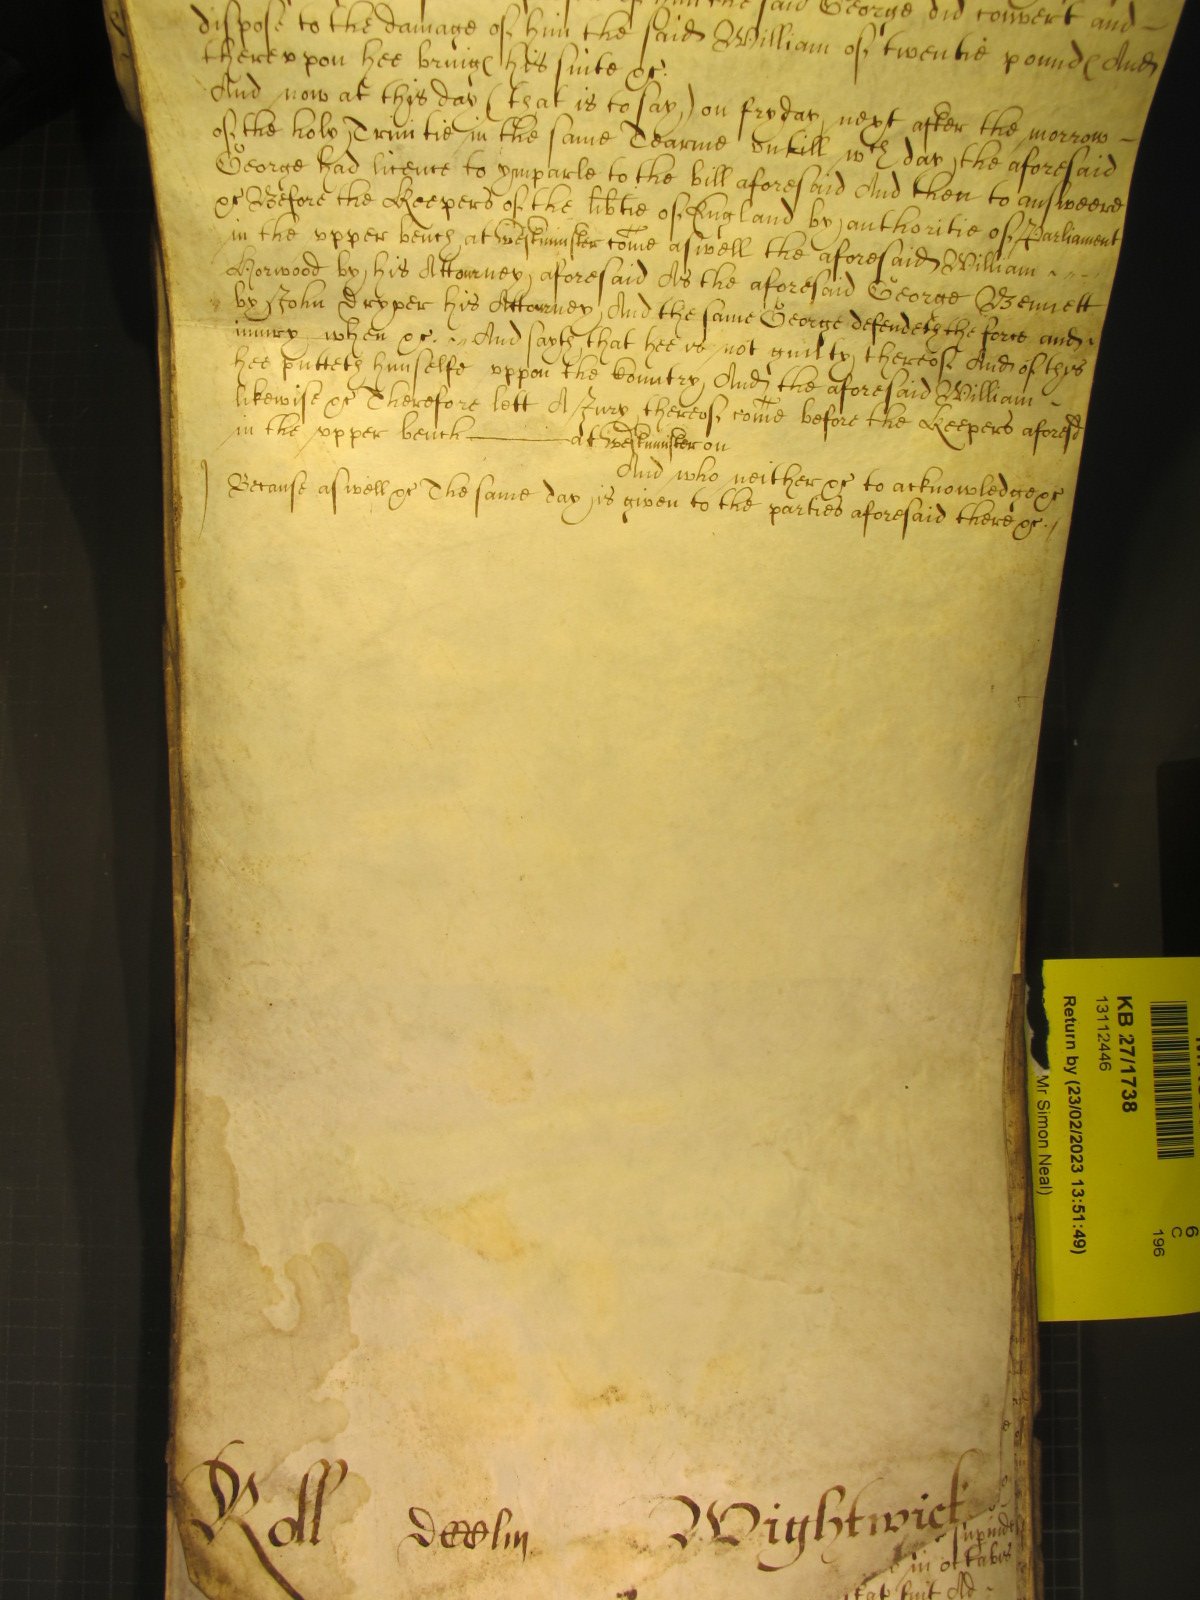 of him the said George did convert and
dispose to the damage of him the said William of twentie pound And
thereuppon hee bringe his suite &c.
And now at this day (that is to say,) on fryday next after the morrow
of the holy Trinitie in the same Tearme untill wch day the aforesaid
George had licence to ymparle to the bill aforesaid And then to answeere
&c Before the Keepers of the libtie of England by authoritie of Parliament
in the upper bench at Westminster come aswell the aforesaid William
Norwood by his Attourney aforesaid As the aforesaid George Bennett
by John Dryper his Attorney And the same George defendeth the force and
iniury when &c. And sayth that hee is not guilty thereof And of thys
hee putteth himselfe uppon the Country And the aforesaid William
likewise &c Therefore lett A Jury thereof come before the Keepers aforesd
in the upper bench at Westminster on
And who neither &c to acknowledge &c
Because aswell &c The same day is given to the parties aforesaid there &c.
Roll Wightwick
in octabis
KB 27/1738
13112446
Return by (23/02/2023 13:51:49)
Mr Simon Neal)
6
C
196